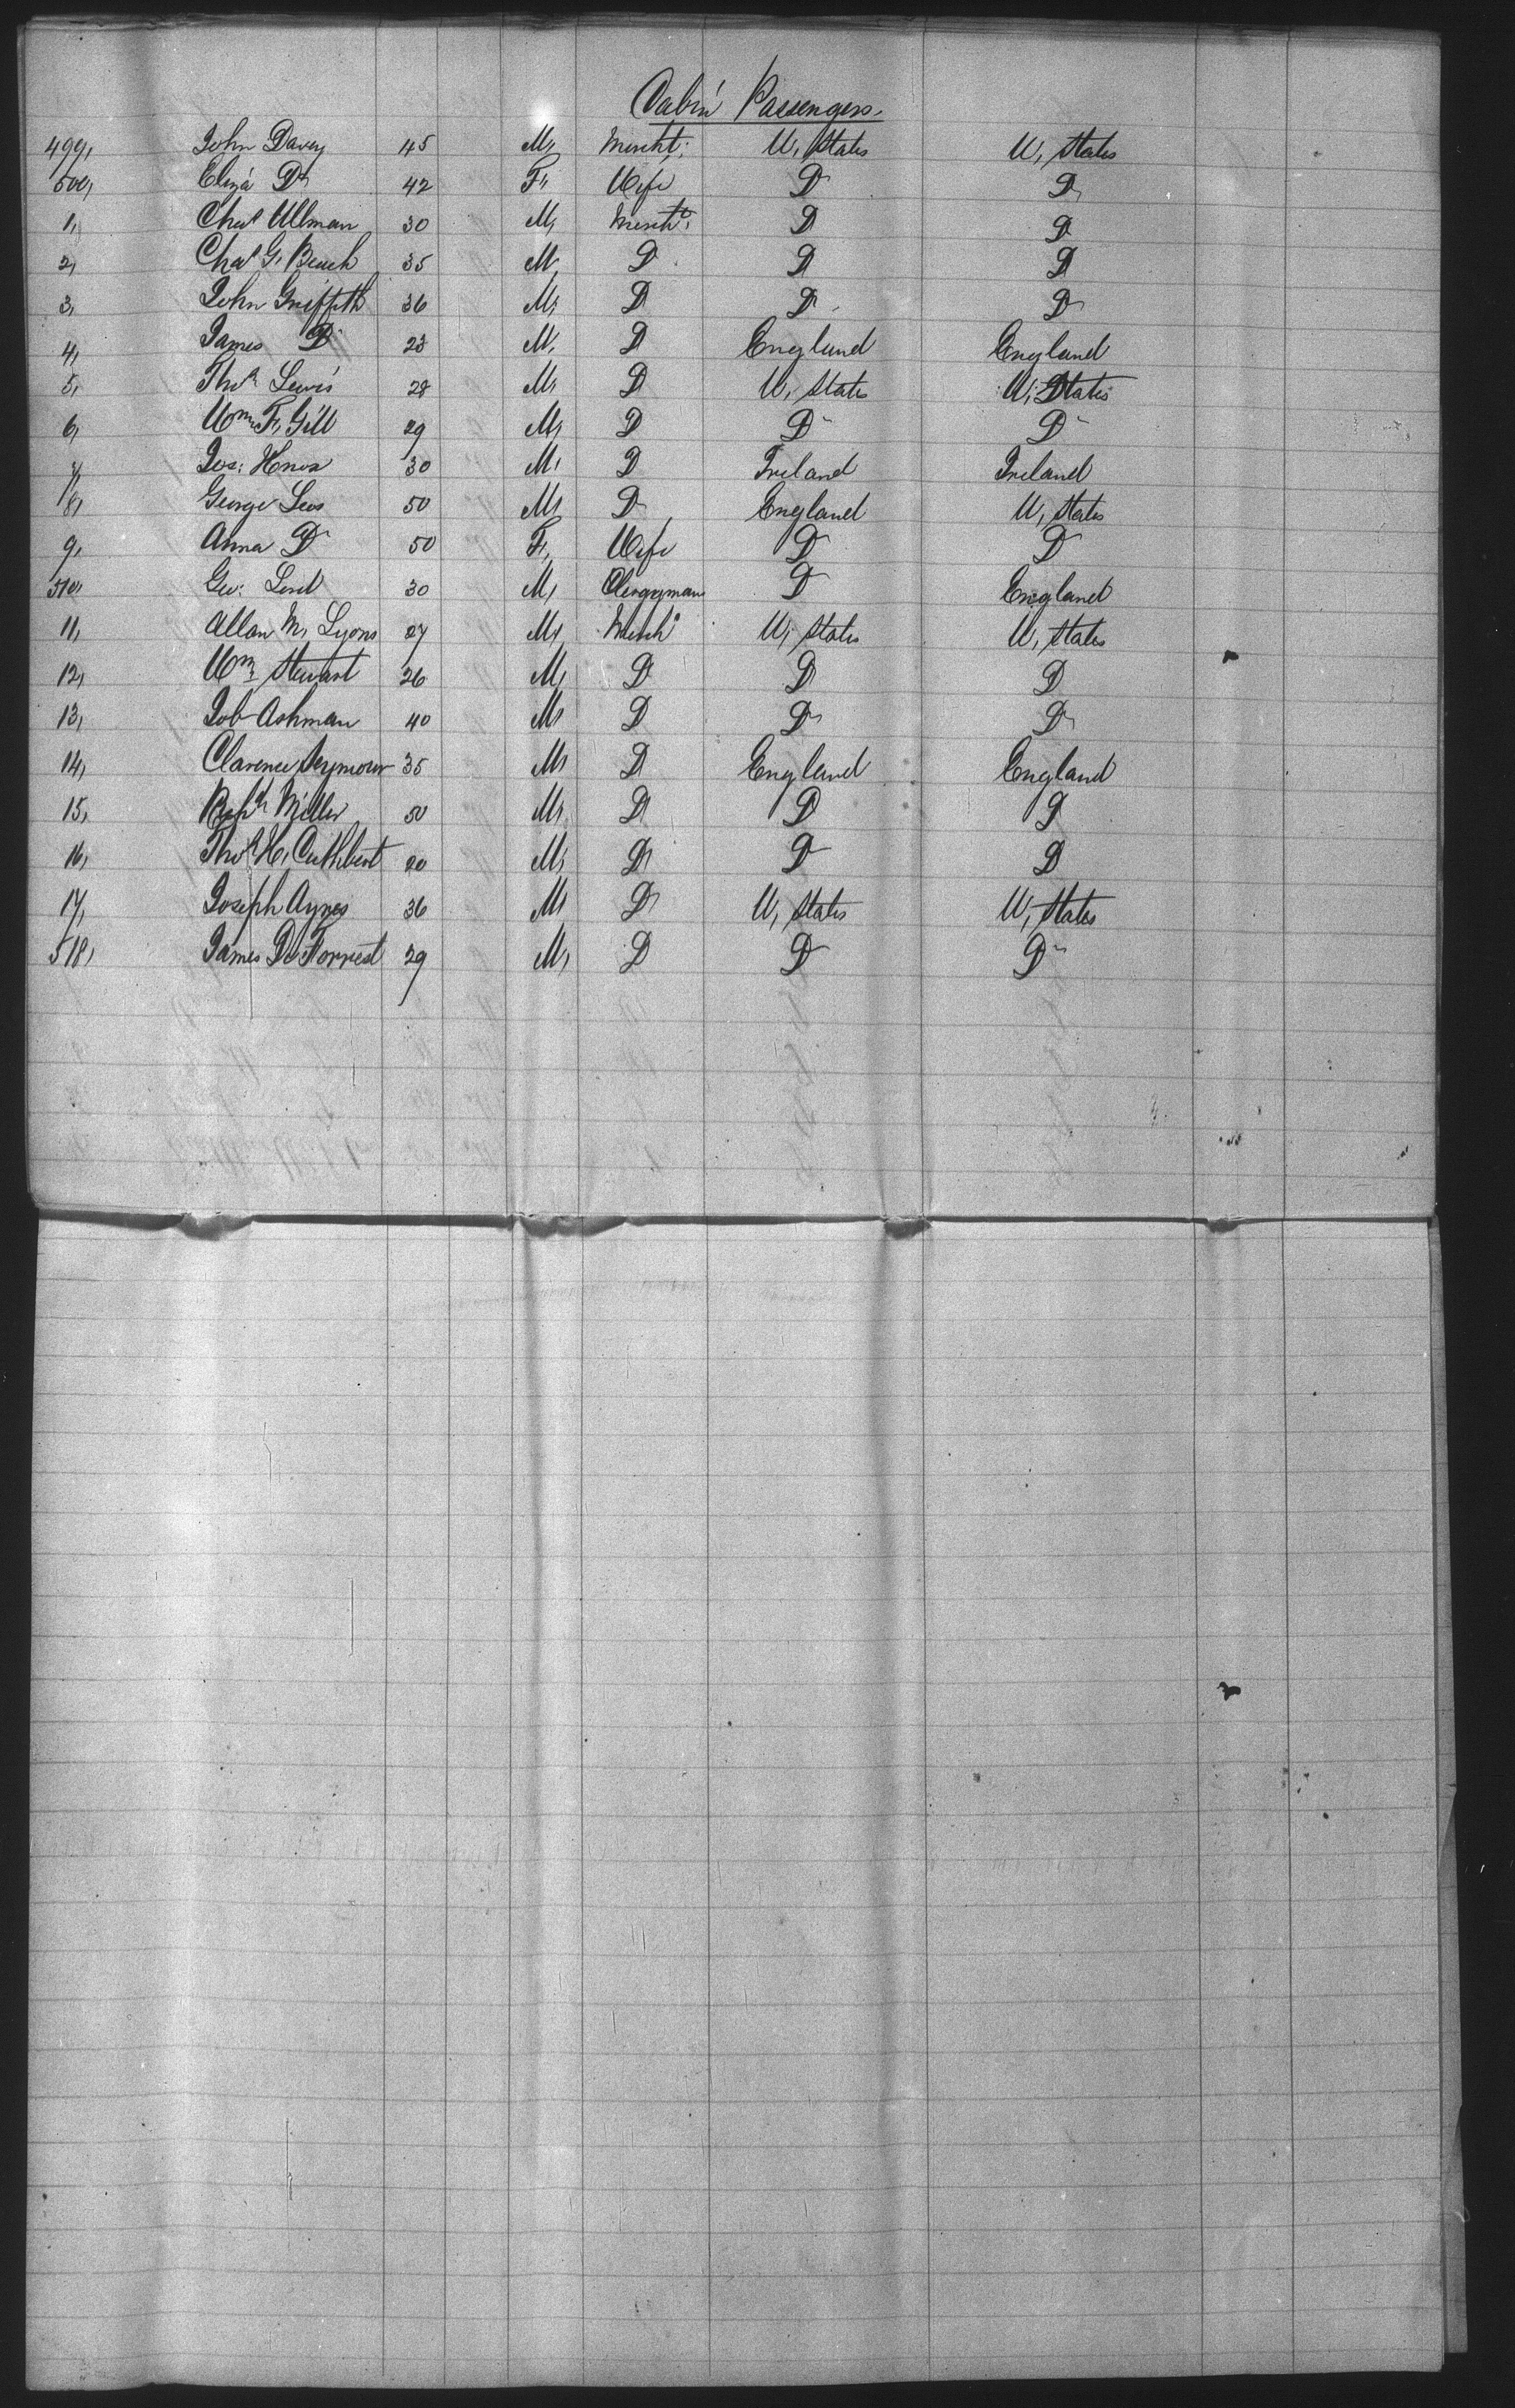 Cabin Passengers.
499, John Davey 45 M, Mercht: U, States U, States
500, Eliza Do 42 F, Wife Do Do
1, Chas Ullman 30 M, Mercht: D D
2, Chas G, Beach 35 M, D D D
3, John Griffith 36 M, D D D
4, James D 23 M, D England England
5, Thos Lewis 28 M, D U, States U, States
6, Wm F, Gill 29 M, D D D
7, Jos: 30 M, D Ireland Ireland
8, George Lees 50 M, D England U, States
9, Anna D 50 F, Wife D D
510, Geo: Lord 30 M, Clergyman D England
11, Allan M, Lyons 27 M, Mercht U, States U, States
12, Wm Stewart 26 M, D D D
13, Job Ashman 40 M, D D D
14, Clarence Seymour 35 M, D England England
15, Miller 50 M, D D D
16, Thos H, Cuthbert 20 M, D D D
17, Joseph Ayres 36 M, D U, States U, States
518, James De Forrest 29 M, D D D